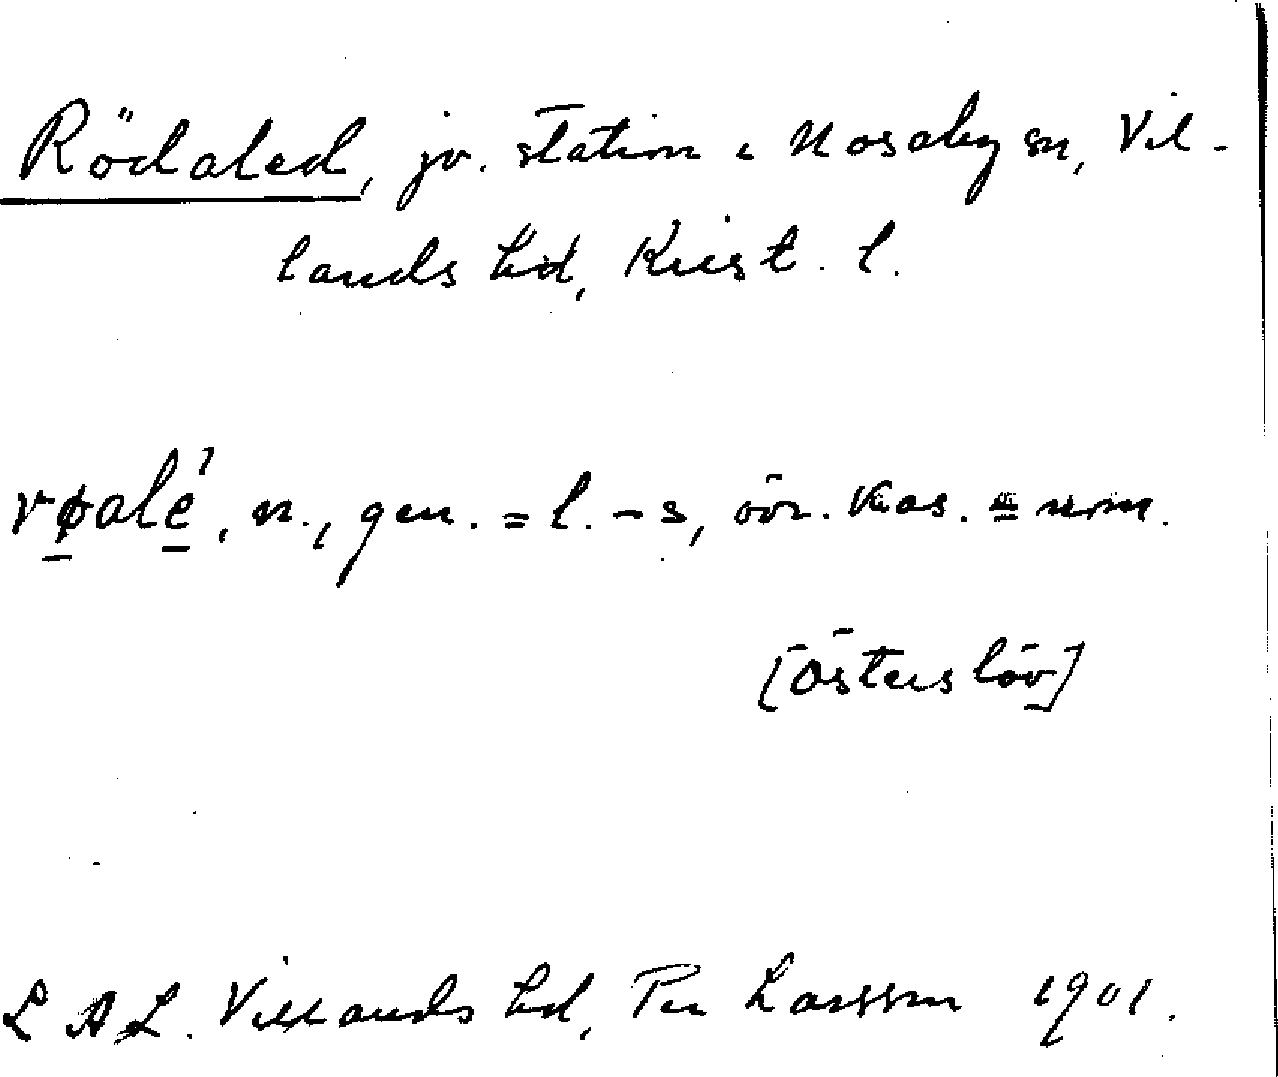 Rödaled, jv. station i Nosaby sn, Vil-
lands hd, Krist. l.
røalé, n., gen. = l. -s, övr. kas. = nom.
[Österslöv]
L A L. Villands hd, Per Larsson 1901.